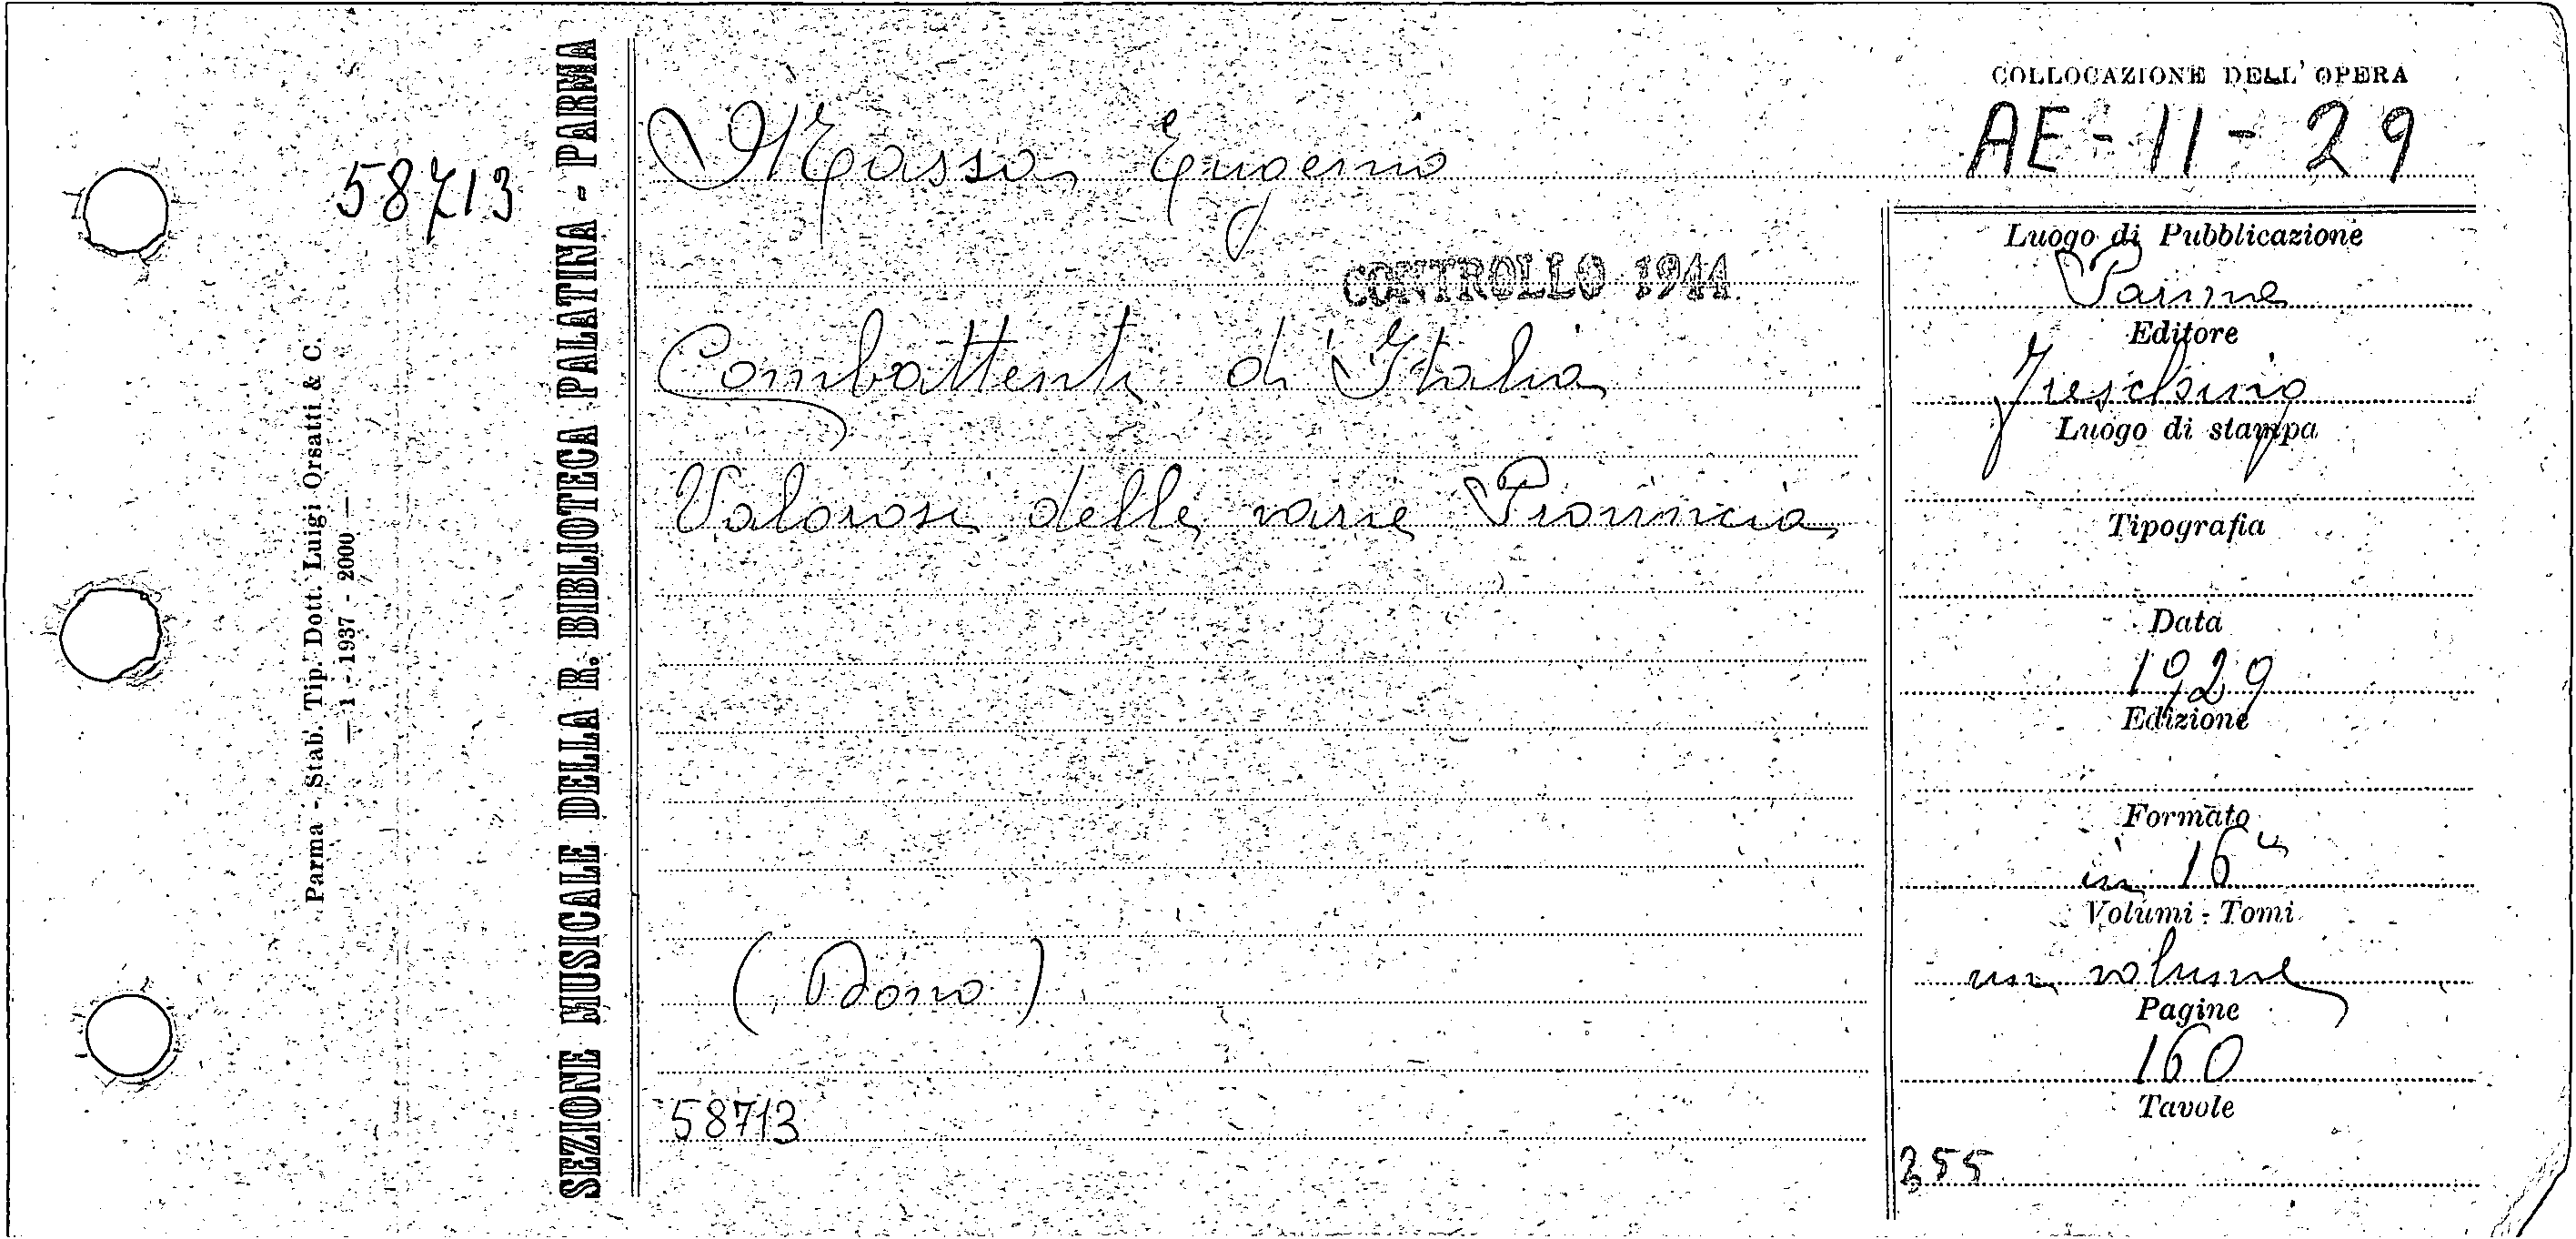 58713
Parma - Stab. Tip. Dott. Luigi Orsatti & C.
— 1 - 1937 - 2000 —
SEZIONE MUSICALE DELLA R. BIBLIOTECA PALATINA - PARMA
Massa Eugenio
CONTROLLO 1944
Combattenti di Italia
Valorosi delle varie Provincia
(Dono)
58713
COLLOCAZIONE DELL' OPERA
AE - 11 - 29
Luogo di Pubblicazione
Editore
Luogo di stampa
Tipografia
Data
1929
Edizione
Formato
in 16º
Volumi - Tomi
un volume
Pagine
160
Tavole
255